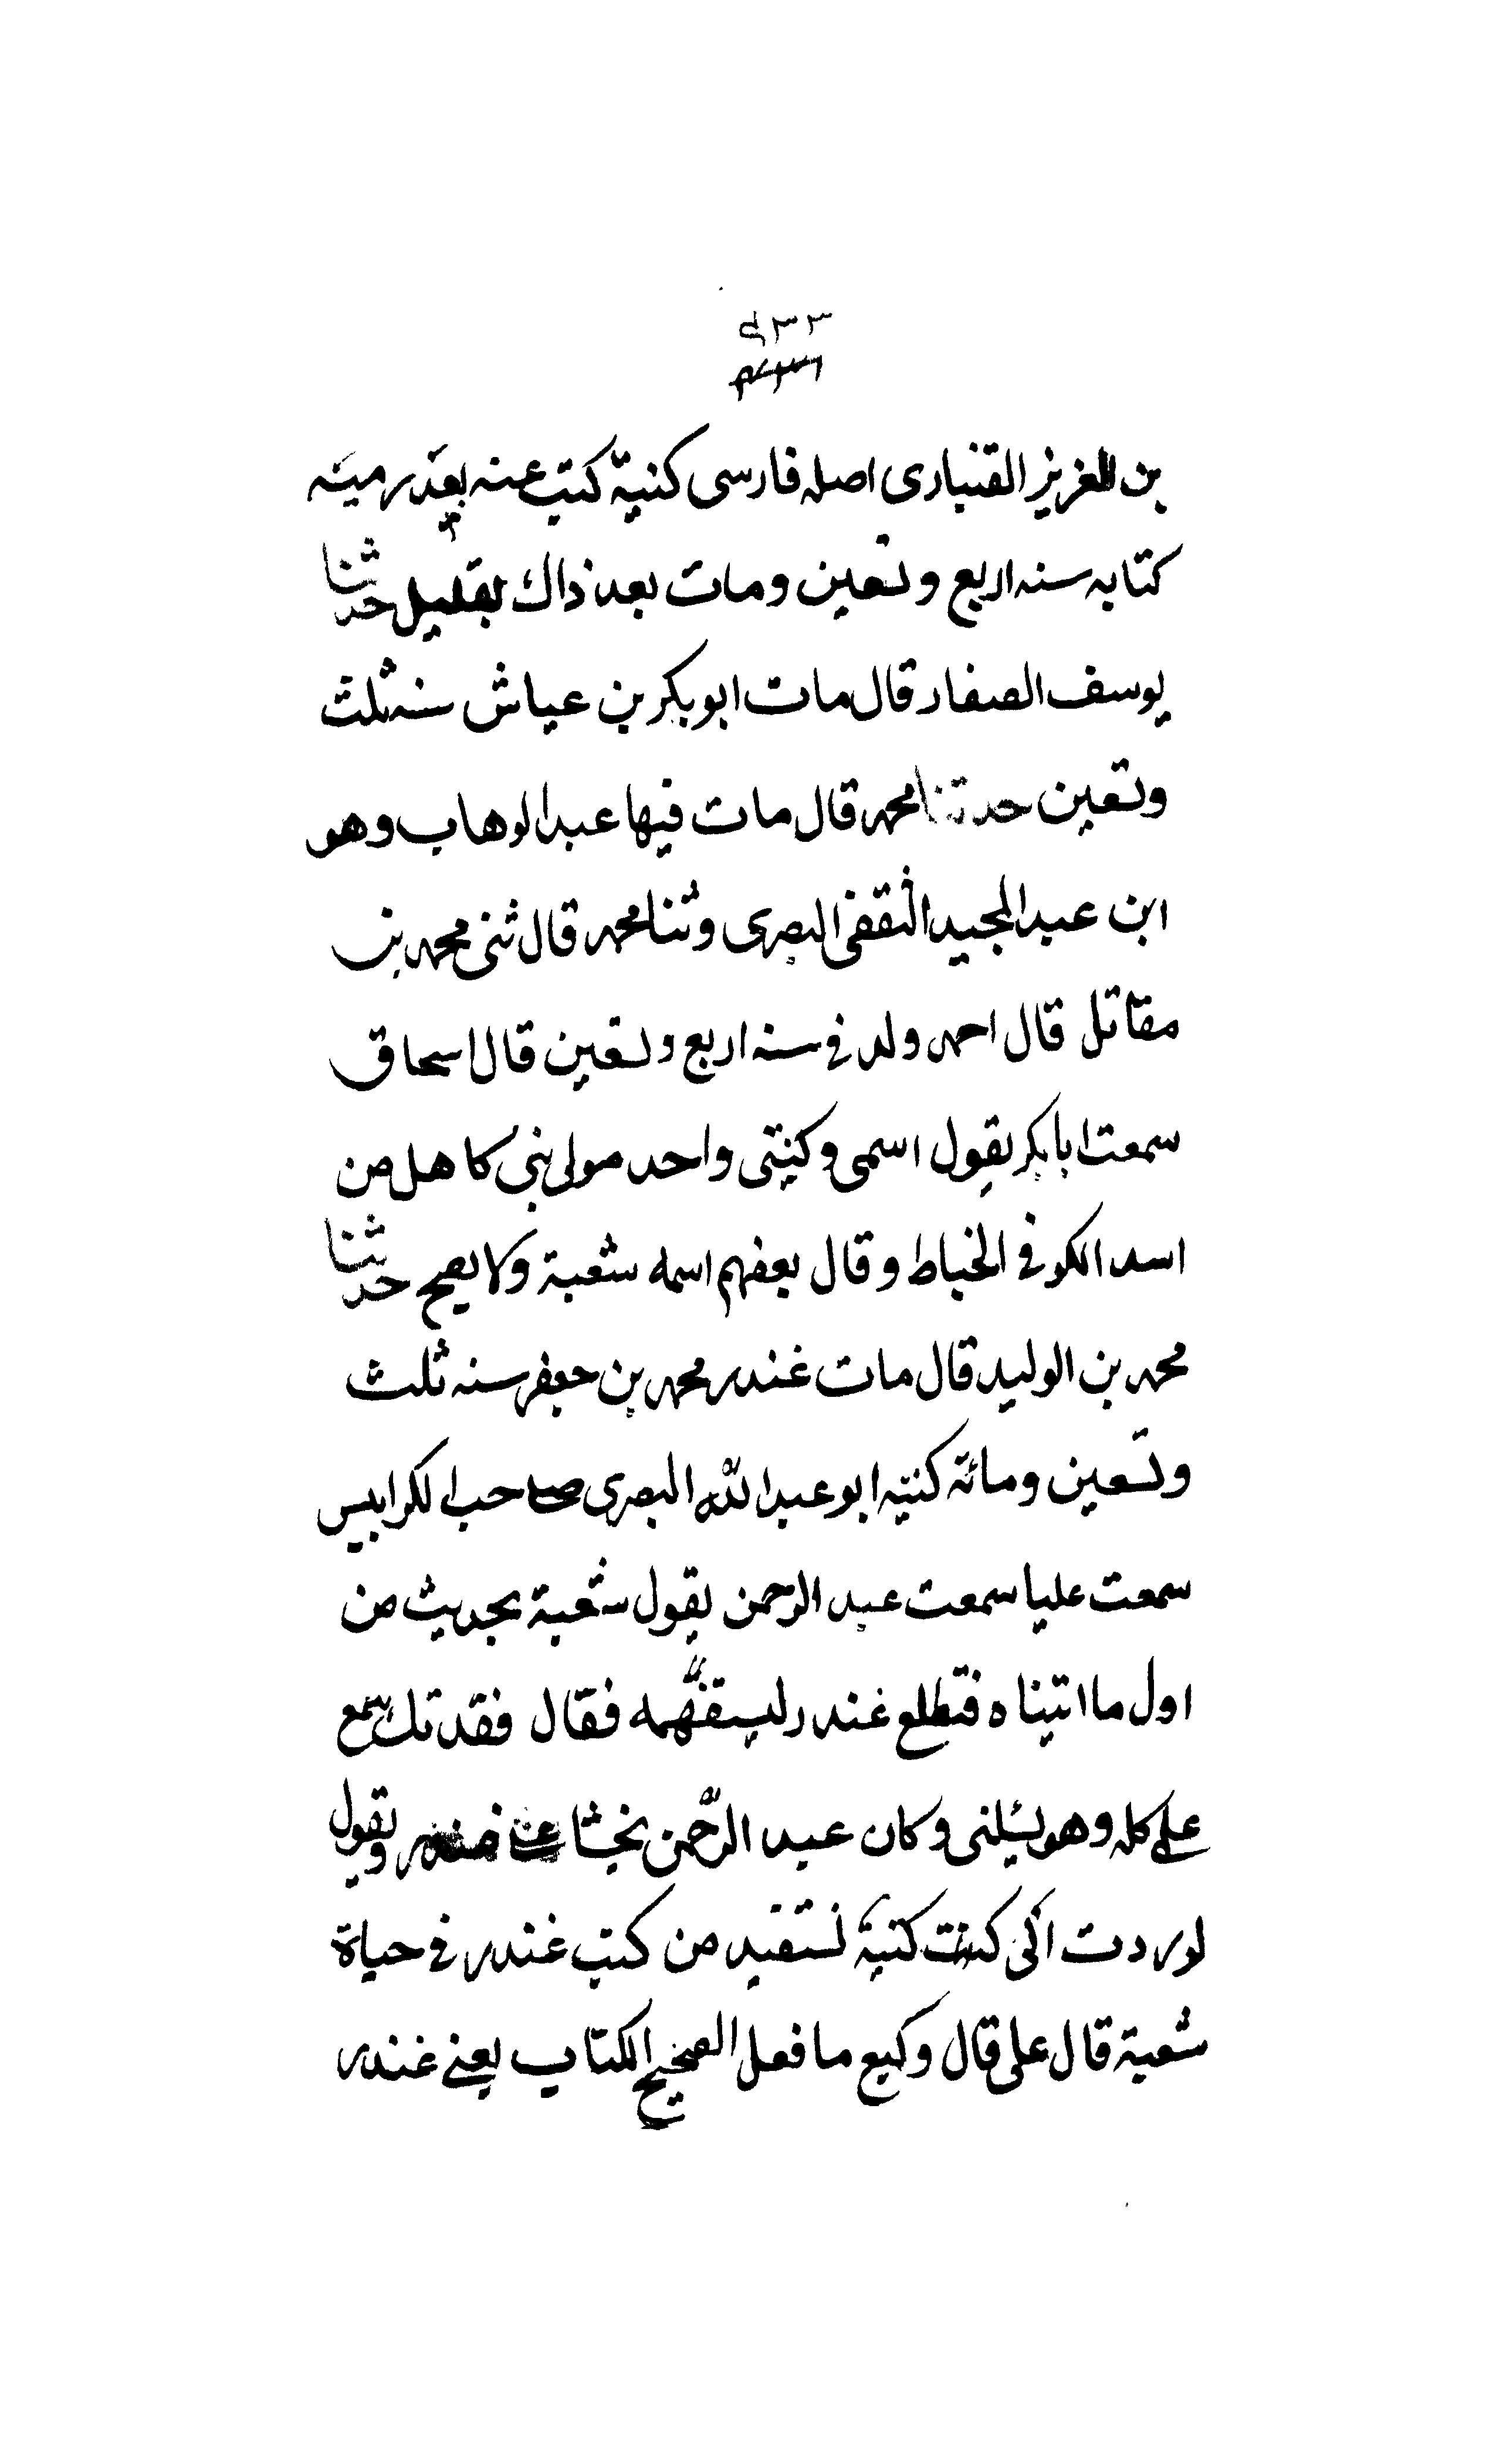 ٣٣٩
بن العزيز القنبارى اصله فارسى كنيته كتب عنه بعد رميته
كتابه سنه اربع وتسعين ومات بعد ذاك بقليل حدثنا
يوسف الصفار قال مات ابو بكر بن عياش سنه ثلث
وتسعين حدثنا محمد قال مات فيها عبد الوهاب وهو
ابن عبد المجيد الثقفى البصرى وثنا محمد قال ثنى محمد بن
مقاتل قال احمد ولد فى سنه اربع وتسعين قال اسحاق
سمعت ابا بكر يقول اسمى وكنيتى واحد مولى بنى كاهل من
اسد الكوفى الخياط وقال بعضهم اسمه شعبة ولا يصح حدثنا
محمد بن الوليد قال مات غندر محمد بن جعفر سنه ثلث
وتسعين ومائة كنيته ابو عبد الله البصرى صاحب الكرابيس
سمعت عليا سمعت عبد الرحمن يقول شعبة بحديث من
اول ما اتيناه فتطلع غندر ليستفهمه فقال فقدتك سمع
على كله وهو يسئلنى وكان عبد الرحمن غندر ويقول
لوردت انى كنت كتبة نستفيد من كتب غندر فى حياة
شعبة قال على قال وكيع ما فعل الصحيح الكتاب يعنى غندر